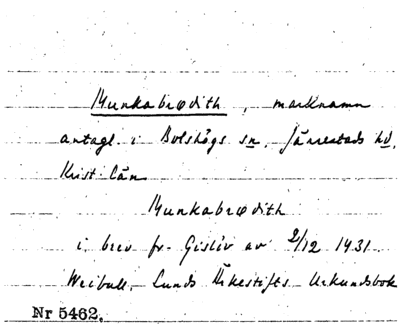 Munkabrødith, marknamn
antagl. i Bolshögs sn, Järrestads hd,
Krist. län
Munkabrødith
i brev fr. Gislöv av 2/12 1431.
Weibull, Lunds Ärkestifts Urkundsbok
Nr 5462.